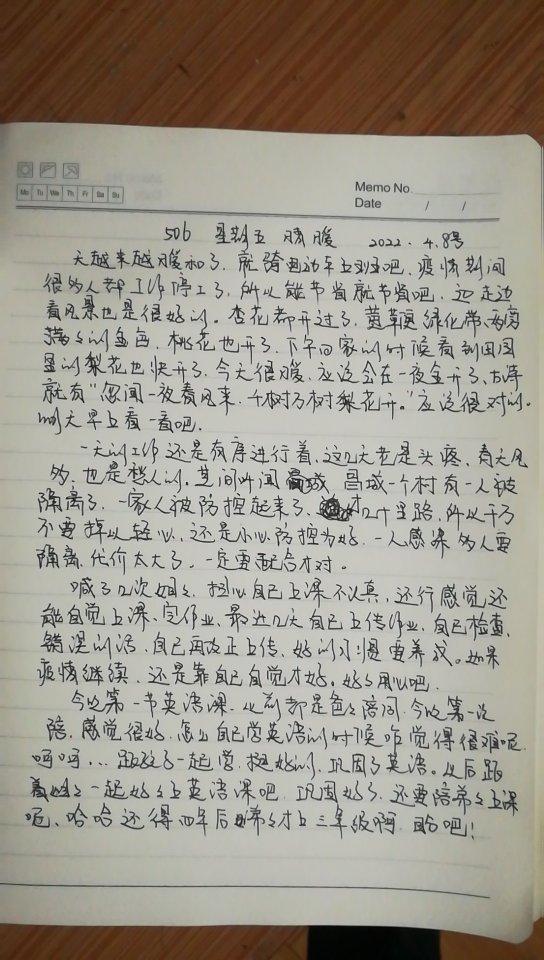 Memo No.
Mo Tu We Th Fr Sa Su
Date / /
506 星期五 晴暖 2022.4.8号
天越来越暖和了，就骑电动车上班吧，疫情期间
很多人都工作停工了，所以能节省就节省吧，边走边
看风景也是很好的。杏花都开过了，黄草随绿化带，两旁
满满的金色，桃花也开了，下午回家的时候看到田园
里的梨花也快开了，今天很暖，应该会在一夜全开了，古诗
就有"忽闻一夜春风来，千树万树梨花开。"应该很对的。
明天早上看一看吧。
一天的工作还是有序进行着，这几天老是头疼，春天风
多，也是愁人的。其间听闻 昌城一个村有一人被
隔离了，一家人被防控起来了，才几十里路，所以千万
不要掉以轻心，还是小心防控为好，一人感染多人要
隔离，代价太大了，一定要配合才对。
喊了几次姐姐，担心自己上课不认真，还行感觉还
能自觉上课、完作业，最近几天自己上传作业，自己检查，
错误的话，自己再改正上传，好的习惯要养成。如果
疫情继续，还是靠自己自觉才好。好好用心吧。
今晚第一节英语课，从前都是爸爸陪同，今晚第一次
陪，感觉很好，怎么自己学英语的时候咋觉得很难呢，
呵呵...跟孩子一起学，挺好的，巩固了英语。以后跟
姐姐一起好好上英语课吧，巩固好了，还要陪弟弟上课
呢，哈哈还得四年后弟弟才上三年级啊，哈吧！